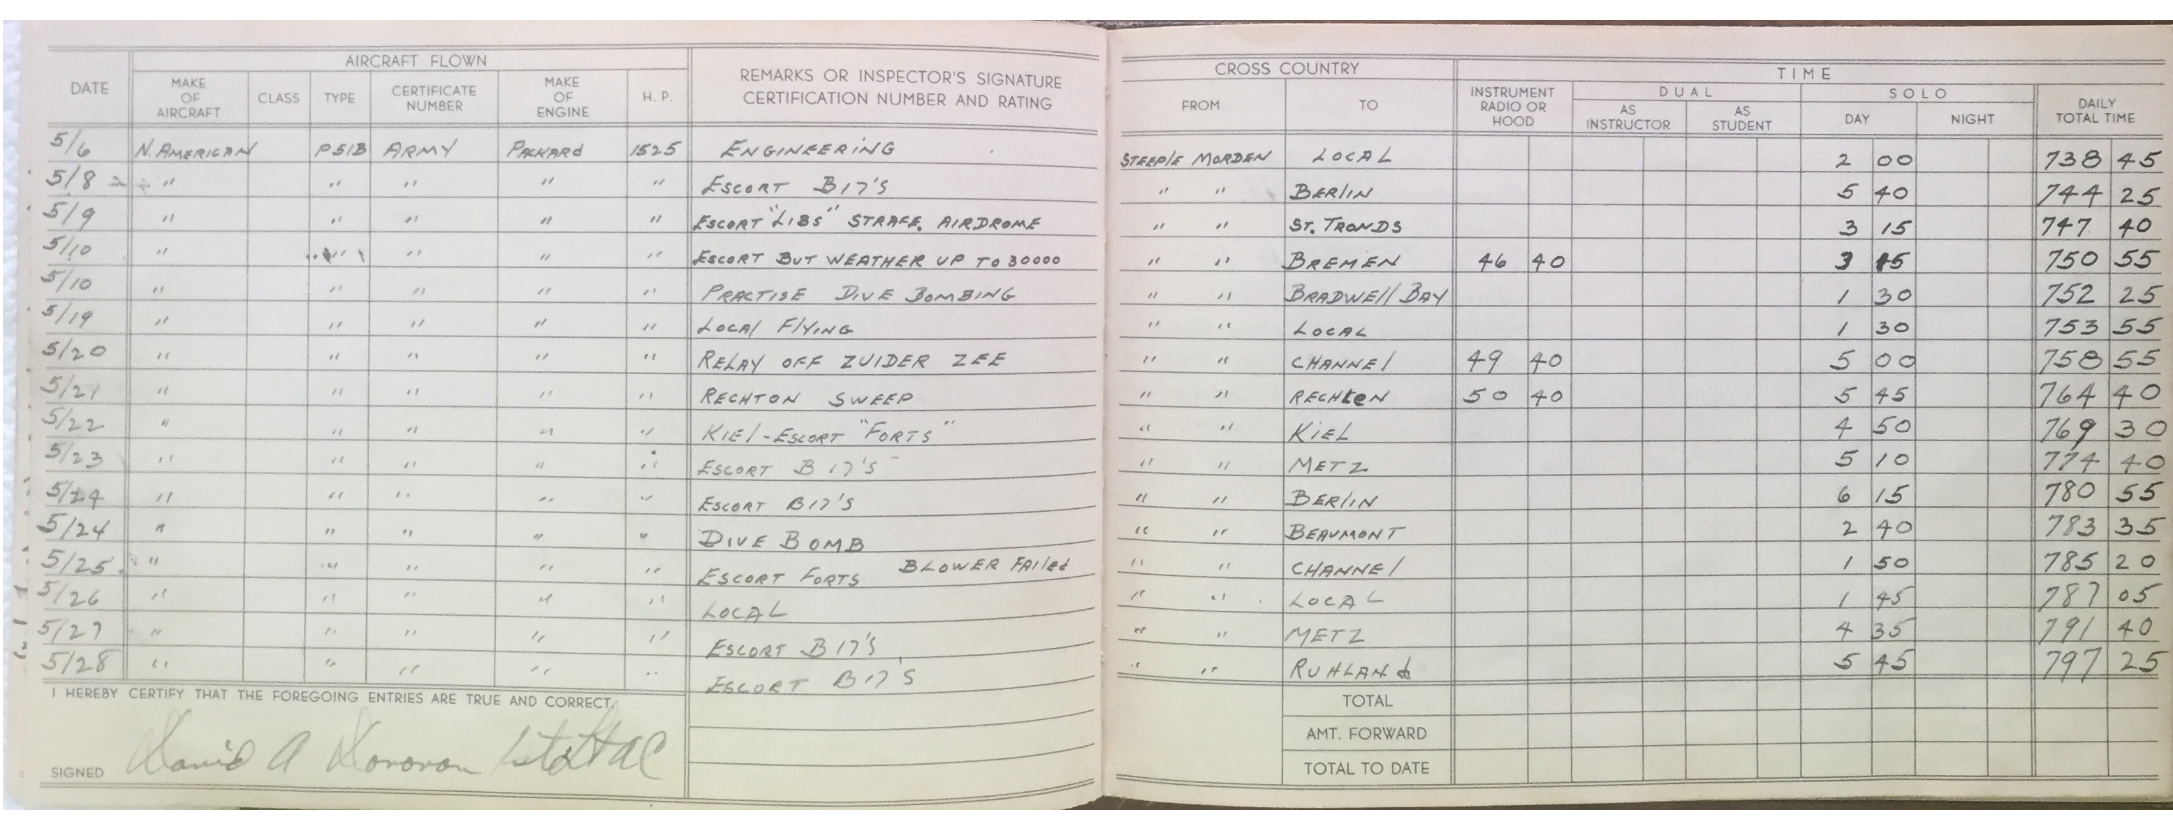 AIRCRAFT FLOWN
DATE MAKE OF AIRCRAFT CLASS TYPE CERTIFICATE NUMBER MAKE OF ENGINE H. P. REMARKS OR INSPECTOR'S SIGNATURE CERTIFICATION NUMBER AND RATING
CROSS COUNTRY TIME
FROM TO INSTRUMENT RADIO OR HOOD DUAL AS INSTRUCTOR AS STUDENT SOLO DAY NIGHT DAILY TOTAL TIME
5/6 N. AMERICAN P51B ARMY PACKARD 1525 ENGINEERING STEEPLE MORDEN LOCAL 2 00 738 45
5/8 " " " " " ESCORT B17'S " " BERLIN 5 40 744 25
5/9 " " " " " ESCORT "LIBS" STRAFE. AIRDROME " " ST. TRONDS 3 15 747 40
5/10 " " " " " ESCORT BUT WEATHER UP TO 30000 " " BREMEN 46 40 3 15 750 55
5/10 " " " " " PRACTISE DIVE BOMBING " " BRADWELL BAY 1 30 752 25
5/19 " " " " " LOCAL FLYING " " LOCAL 1 30 753 55
5/20 " " " " " RELAY OFF ZUIDER ZEE " " CHANNEL 49 40 5 00 758 55
5/21 " " " " " RECHTON SWEEP " " RECHTEN 50 40 5 45 764 40
5/22 " " " " " KIEL-ESCORT "FORTS" " " KIEL 4 50 769 30
5/23 " " " " " ESCORT B17'S " " METZ 5 10 774 40
5/24 " " " " " ESCORT B17'S " " BERLIN 6 15 780 55
5/24 " " " " " DIVE BOMB " " BEAUMONT 2 40 783 35
5/25 " " " " " ESCORT FORTS BLOWER FAILED " " CHANNEL 1 50 785 20
5/26 " " " " " LOCAL " " LOCAL 1 45 787 05
5/27 " " " " " ESCORT B17'S " " METZ 4 35 791 40
5/28 " " " " " ESCORT B17'S " " RUHLAND 5 45 797 25
I HEREBY CERTIFY THAT THE FOREGOING ENTRIES ARE TRUE AND CORRECT.
SIGNED David A Donovan 1st Lt AC
TOTAL
AMT. FORWARD
TOTAL TO DATE